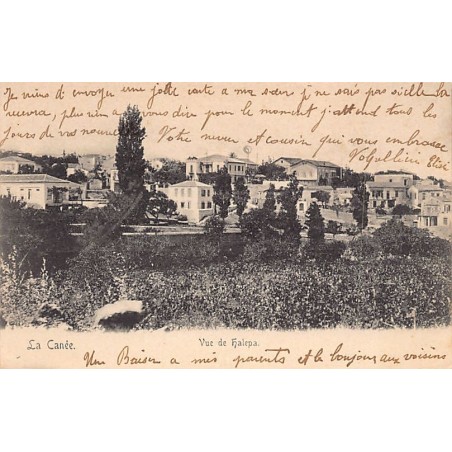 Je viens d'envoyer une jolie carte a ma sœur j'ne sais pas si elle la
recevra, plus rien a vous dire pour le moment j'attend tous les
jours de vos nouv
Votre neveu et cousin qui vous embrasse
La Canée.
Vue de Halepa.
Un Baiser a mes parents et le bonjour aux voisins